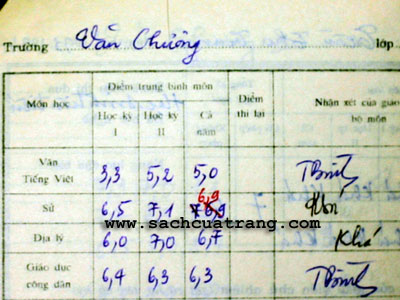 Trường Văn Chương lớp
Môn học
Điểm trung bình môn
Học kỳ I
Học kỳ II
Cả năm
Điểm thi lại
Nhận xét của giáo
bộ môn
Văn
Tiếng Việt 3,3 5,2 5,0 TBình
6,9
Sử 6,5 7,1
www.sachcuatrang.com
Địa lý 6,0 7,0 6,7 Khá
Giáo dục
công dân 6,4 6,3 6,3 TBình